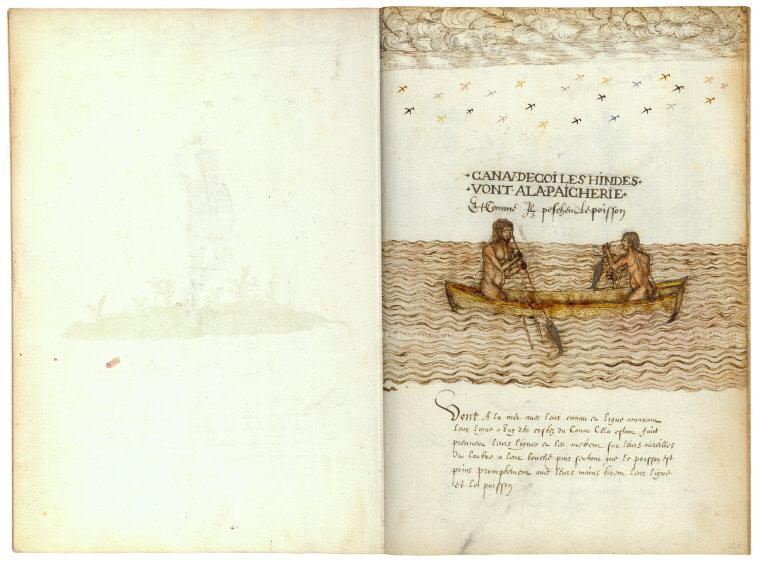 CANAV DEQOI LES HINDES
VONT A LA PAICHERIE
Et Comme Ilz peschen le poisson
Vont A la mer avec leur canau et ligne amarant
leur ligne a ung des costez du Canau Cela estant fait
prennent leurs lignes et les mettent sur leurs aureilles
ou lautre a leur bouche puis sentant que le poisson est
prins promptement avec leurs mains tirent leur ligne
et le poisson